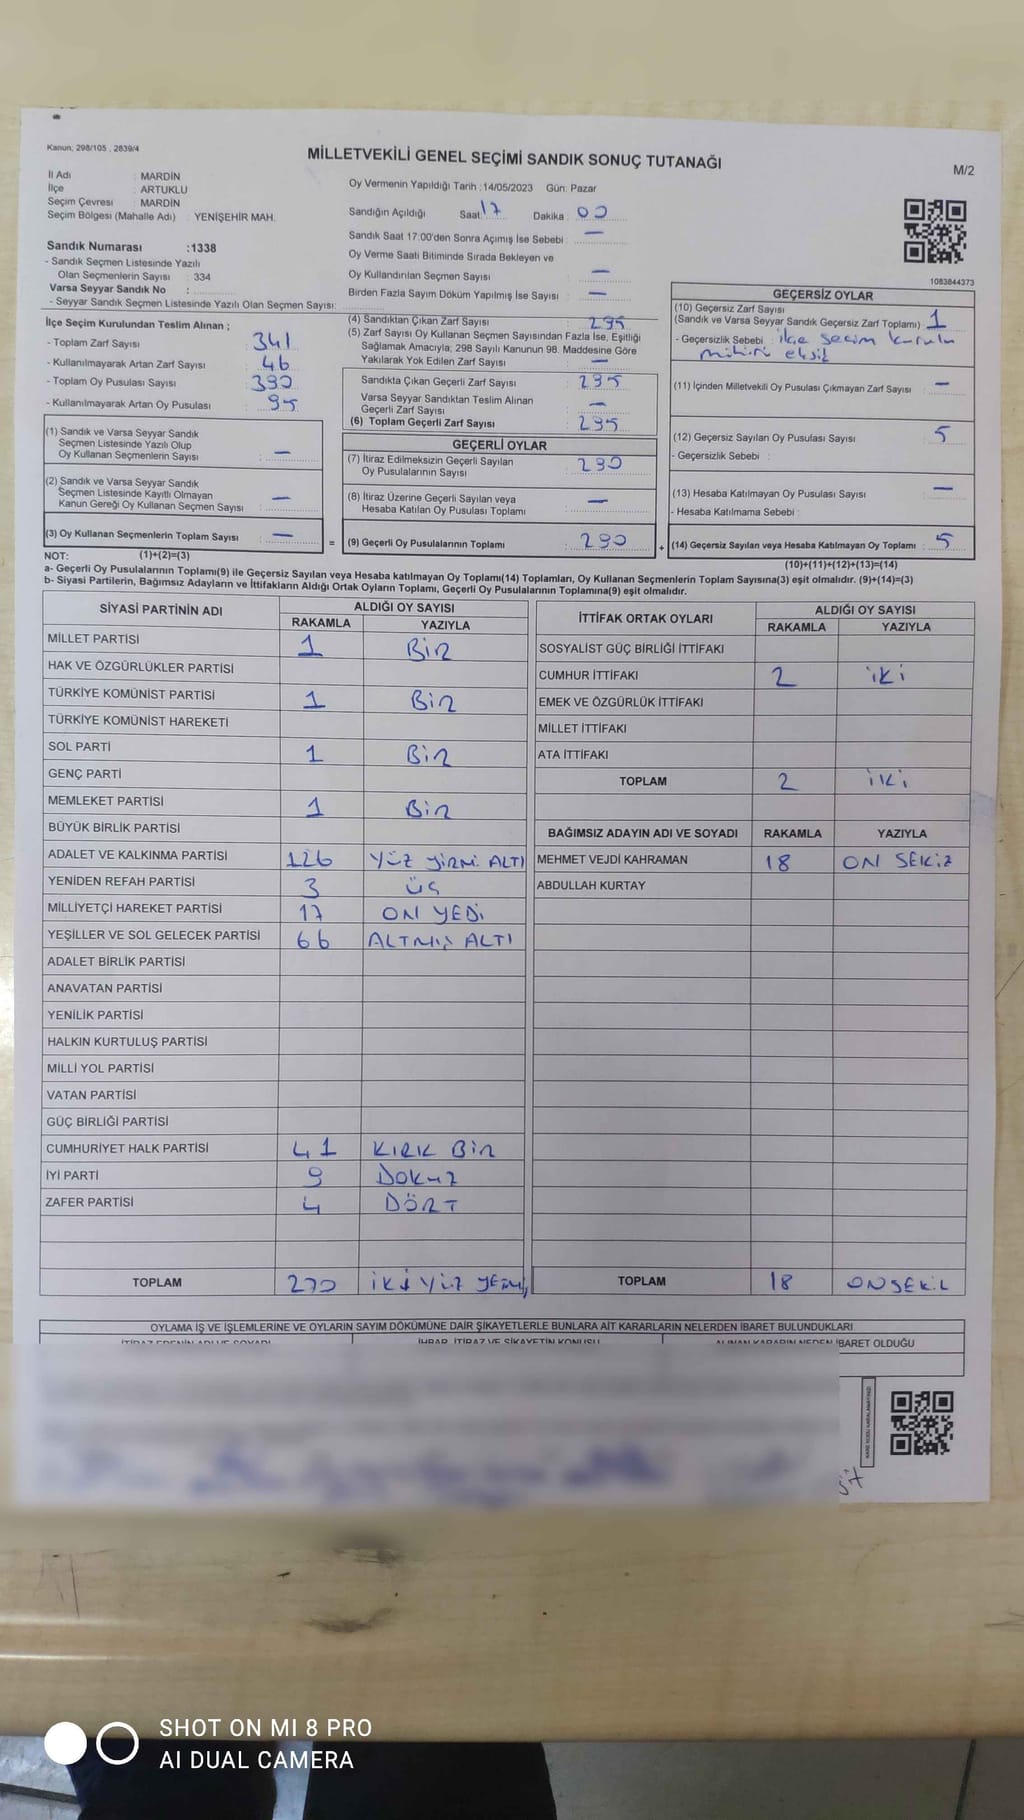 Kanun; 298/105 , 2839/4
MİLLETVEKİLİ GENEL SEÇİMİ SANDIK SONUÇ TUTANAĞI
M/2
İl Adı : MARDİN
İlçe : ARTUKLU
Seçim Çevresi : MARDİN
Seçim Bölgesi (Mahalle Adı) : YENİŞEHİR MAH.
Sandık Numarası :1338
- Sandık Seçmen Listesinde Yazılı
Olan Seçmenlerin Sayısı : 334
Varsa Seyyar Sandık No :
- Seyyar Sandık Seçmen Listesinde Yazılı Olan Seçmen Sayısı:
Oy Vermenin Yapıldığı Tarih :14/05/2023 Gün: Pazar
Sandığın Açıldığı Saat: 17 Dakika : 00
Sandık Saat 17:00'den Sonra Açımış İse Sebebi : —
Oy Verme Saati Bitiminde Sırada Bekleyen ve
Oy Kullandırılan Seçmen Sayısı : —
Birden Fazla Sayım Döküm Yapılmış İse Sayısı : —
1083844373
İlçe Seçim Kurulundan Teslim Alınan ;
- Toplam Zarf Sayısı : 341
- Kullanılmayarak Artan Zarf Sayısı : 46
- Toplam Oy Pusulası Sayısı : 390
- Kullanılmayarak Artan Oy Pusulası : 95
(1) Sandık ve Varsa Seyyar Sandık
Seçmen Listesinde Yazılı Olup
Oy Kullanan Seçmenlerin Sayısı : —
(2) Sandık ve Varsa Seyyar Sandık
Seçmen Listesinde Kayıtlı Olmayan
Kanun Gereği Oy Kullanan Seçmen Sayısı : —
(3) Oy Kullanan Seçmenlerin Toplam Sayısı : —
(4) Sandıktan Çıkan Zarf Sayısı : 295
(5) Zarf Sayısı Oy Kullanan Seçmen Sayısından Fazla İse, Eşitliği
Sağlamak Amacıyla; 298 Sayılı Kanunun 98. Maddesine Göre
Yakılarak Yok Edilen Zarf Sayısı : —
Sandıkta Çıkan Geçerli Zarf Sayısı : 295
Varsa Seyyar Sandıktan Teslim Alınan
Geçerli Zarf Sayısı : —
(6) Toplam Geçerli Zarf Sayısı : 295
GEÇERLİ OYLAR
(7) İtiraz Edilmeksizin Geçerli Sayılan
Oy Pusulalarının Sayısı : 290
(8) İtiraz Üzerine Geçerli Sayılan veya
Hesaba Katılan Oy Pusulası Toplamı : —
= (9) Geçerli Oy Pusulalarının Toplamı : 290
GEÇERSİZ OYLAR
(10) Geçersiz Zarf Sayısı
(Sandık ve Varsa Seyyar Sandık Geçersiz Zarf Toplamı) : 1
- Geçersizlik Sebebi : ilçe seçim kurulu
mührü eksik
(11) İçinden Milletvekili Oy Pusulası Çıkmayan Zarf Sayısı : —
(12) Geçersiz Sayılan Oy Pusulası Sayısı : 5
- Geçersizlik Sebebi :
(13) Hesaba Katılmayan Oy Pusulası Sayısı : —
- Hesaba Katılmama Sebebi :
+ (14) Geçersiz Sayılan veya Hesaba Katılmayan Oy Toplamı : 5
NOT: (1)+(2)=(3)
(10)+(11)+(12)+(13)=(14)
a- Geçerli Oy Pusulalarının Toplamı(9) ile Geçersiz Sayılan veya Hesaba katılmayan Oy Toplamı(14) Toplamları, Oy Kullanan Seçmenlerin Toplam Sayısına(3) eşit olmalıdır. (9)+(14)=(3)
b- Siyasi Partilerin, Bağımsız Adayların ve İttifakların Aldığı Ortak Oyların Toplamı, Geçerli Oy Pusulalarının Toplamına(9) eşit olmalıdır.
SİYASİ PARTİNİN ADI ALDIĞI OY SAYISI
RAKAMLA YAZIYLA
MİLLET PARTİSİ 1 BİR
HAK VE ÖZGÜRLÜKLER PARTİSİ
TÜRKİYE KOMÜNİST PARTİSİ 1 BİR
TÜRKİYE KOMÜNİST HAREKETİ
SOL PARTİ 1 BİR
GENÇ PARTİ
MEMLEKET PARTİSİ 1 BİR
BÜYÜK BİRLİK PARTİSİ
ADALET VE KALKINMA PARTİSİ 126 YÜZ YİRMİ ALTI
YENİDEN REFAH PARTİSİ 3 ÜÇ
MİLLİYETÇİ HAREKET PARTİSİ 17 ON YEDİ
YEŞİLLER VE SOL GELECEK PARTİSİ 66 ALTMIŞ ALTI
ADALET BİRLİK PARTİSİ
ANAVATAN PARTİSİ
YENİLİK PARTİSİ
HALKIN KURTULUŞ PARTİSİ
MİLLİ YOL PARTİSİ
VATAN PARTİSİ
GÜÇ BİRLİĞİ PARTİSİ
CUMHURİYET HALK PARTİSİ 41 KIRK BİR
İYİ PARTİ 9 DOKUZ
ZAFER PARTİSİ 4 DÖRT
TOPLAM 270 İKİ YÜZ
İTTİFAK ORTAK OYLARI ALDIĞI OY SAYISI
RAKAMLA YAZIYLA
SOSYALİST GÜÇ BİRLİĞİ İTTİFAKI
CUMHUR İTTİFAKI 2 İKİ
EMEK VE ÖZGÜRLÜK İTTİFAKI
MİLLET İTTİFAKI
ATA İTTİFAKI
TOPLAM 2 İKİ
BAĞIMSIZ ADAYIN ADI VE SOYADI RAKAMLA YAZIYLA
MEHMET VEJDİ KAHRAMAN 18 ON SEKİZ
ABDULLAH KURTAY
TOPLAM 18 ONSEKİZ
OYLAMA İŞ VE İŞLEMLERİNE VE OYLARIN SAYIM DÖKÜMÜNE DAİR ŞİKAYETLERLE BUNLARA AİT KARARLARIN NELERDEN İBARET BULUNDUKLARI
İTİRAZ EDENİN ADI VE SOYADI İHBAR, İTİRAZ VE ŞİKAYETİN KONUSU ALINAN KARARIN NEDEN İBARET OLDUĞU
SHOT ON MI 8 PRO
AI DUAL CAMERA